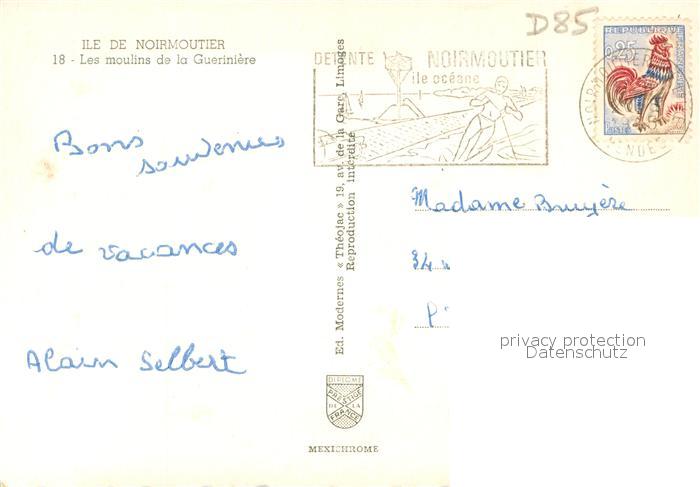 D85
ILE DE NOIRMOUTIER
18 - Les moulins de la Guerinière
DETENTE NOIRMOUTIER
île océane
0,25
POSTES
VENDÉE
Bons
souvenirs
de vacances
Alain Selbert
Ed. Modernes « Théojac » 19, av. de la Gare, Limoges
Reproduction interdite
Madame Bruyère
34
P
privacy protection
Datenschutz
DIPLOME
PRESTIGE
DE LA
FRANCE
MEXICHROME